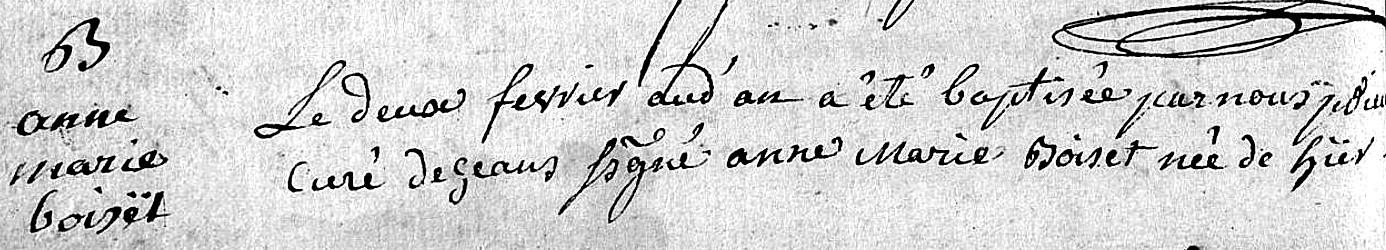 B
anne
marie
boisët
Le deux fevrier aud' an a été baptisée par nous
Curé de geaus sgné anne Marie Boiset née de hÿer